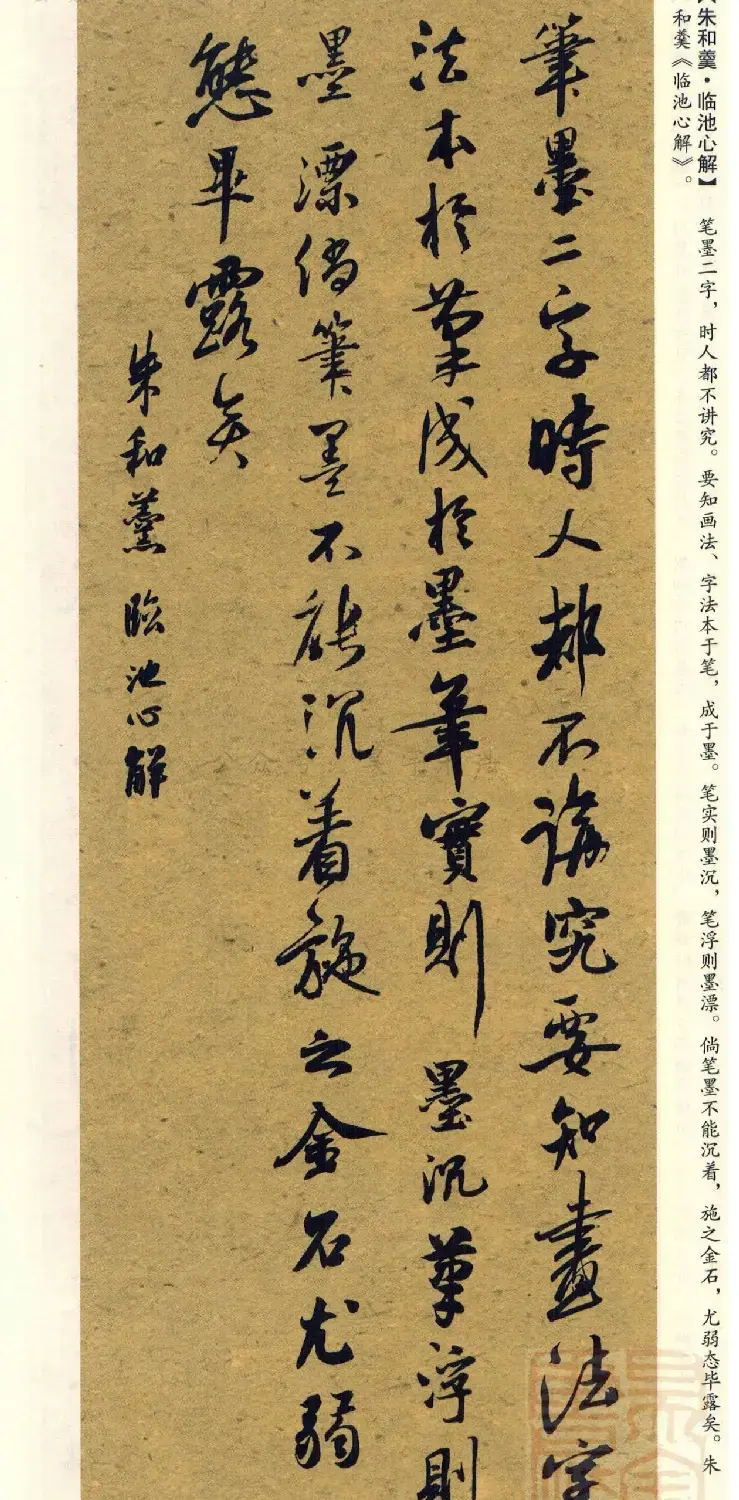 【朱和羹·临池心解】 笔墨二字，时人都不讲究。要知画法、字法本于笔，成于墨。笔实则墨沉，笔浮则墨漂。倘笔墨不能沉着，施之金石，尤弱态毕露矣。朱
和羹《临池心解》。
筆墨二字時人都不講究要知畫法字
法本於筆成於墨筆實則墨沉筆浮則
墨漂倘筆墨不能沉着施之金石尤弱
態畢露矣
朱和羹臨池心解